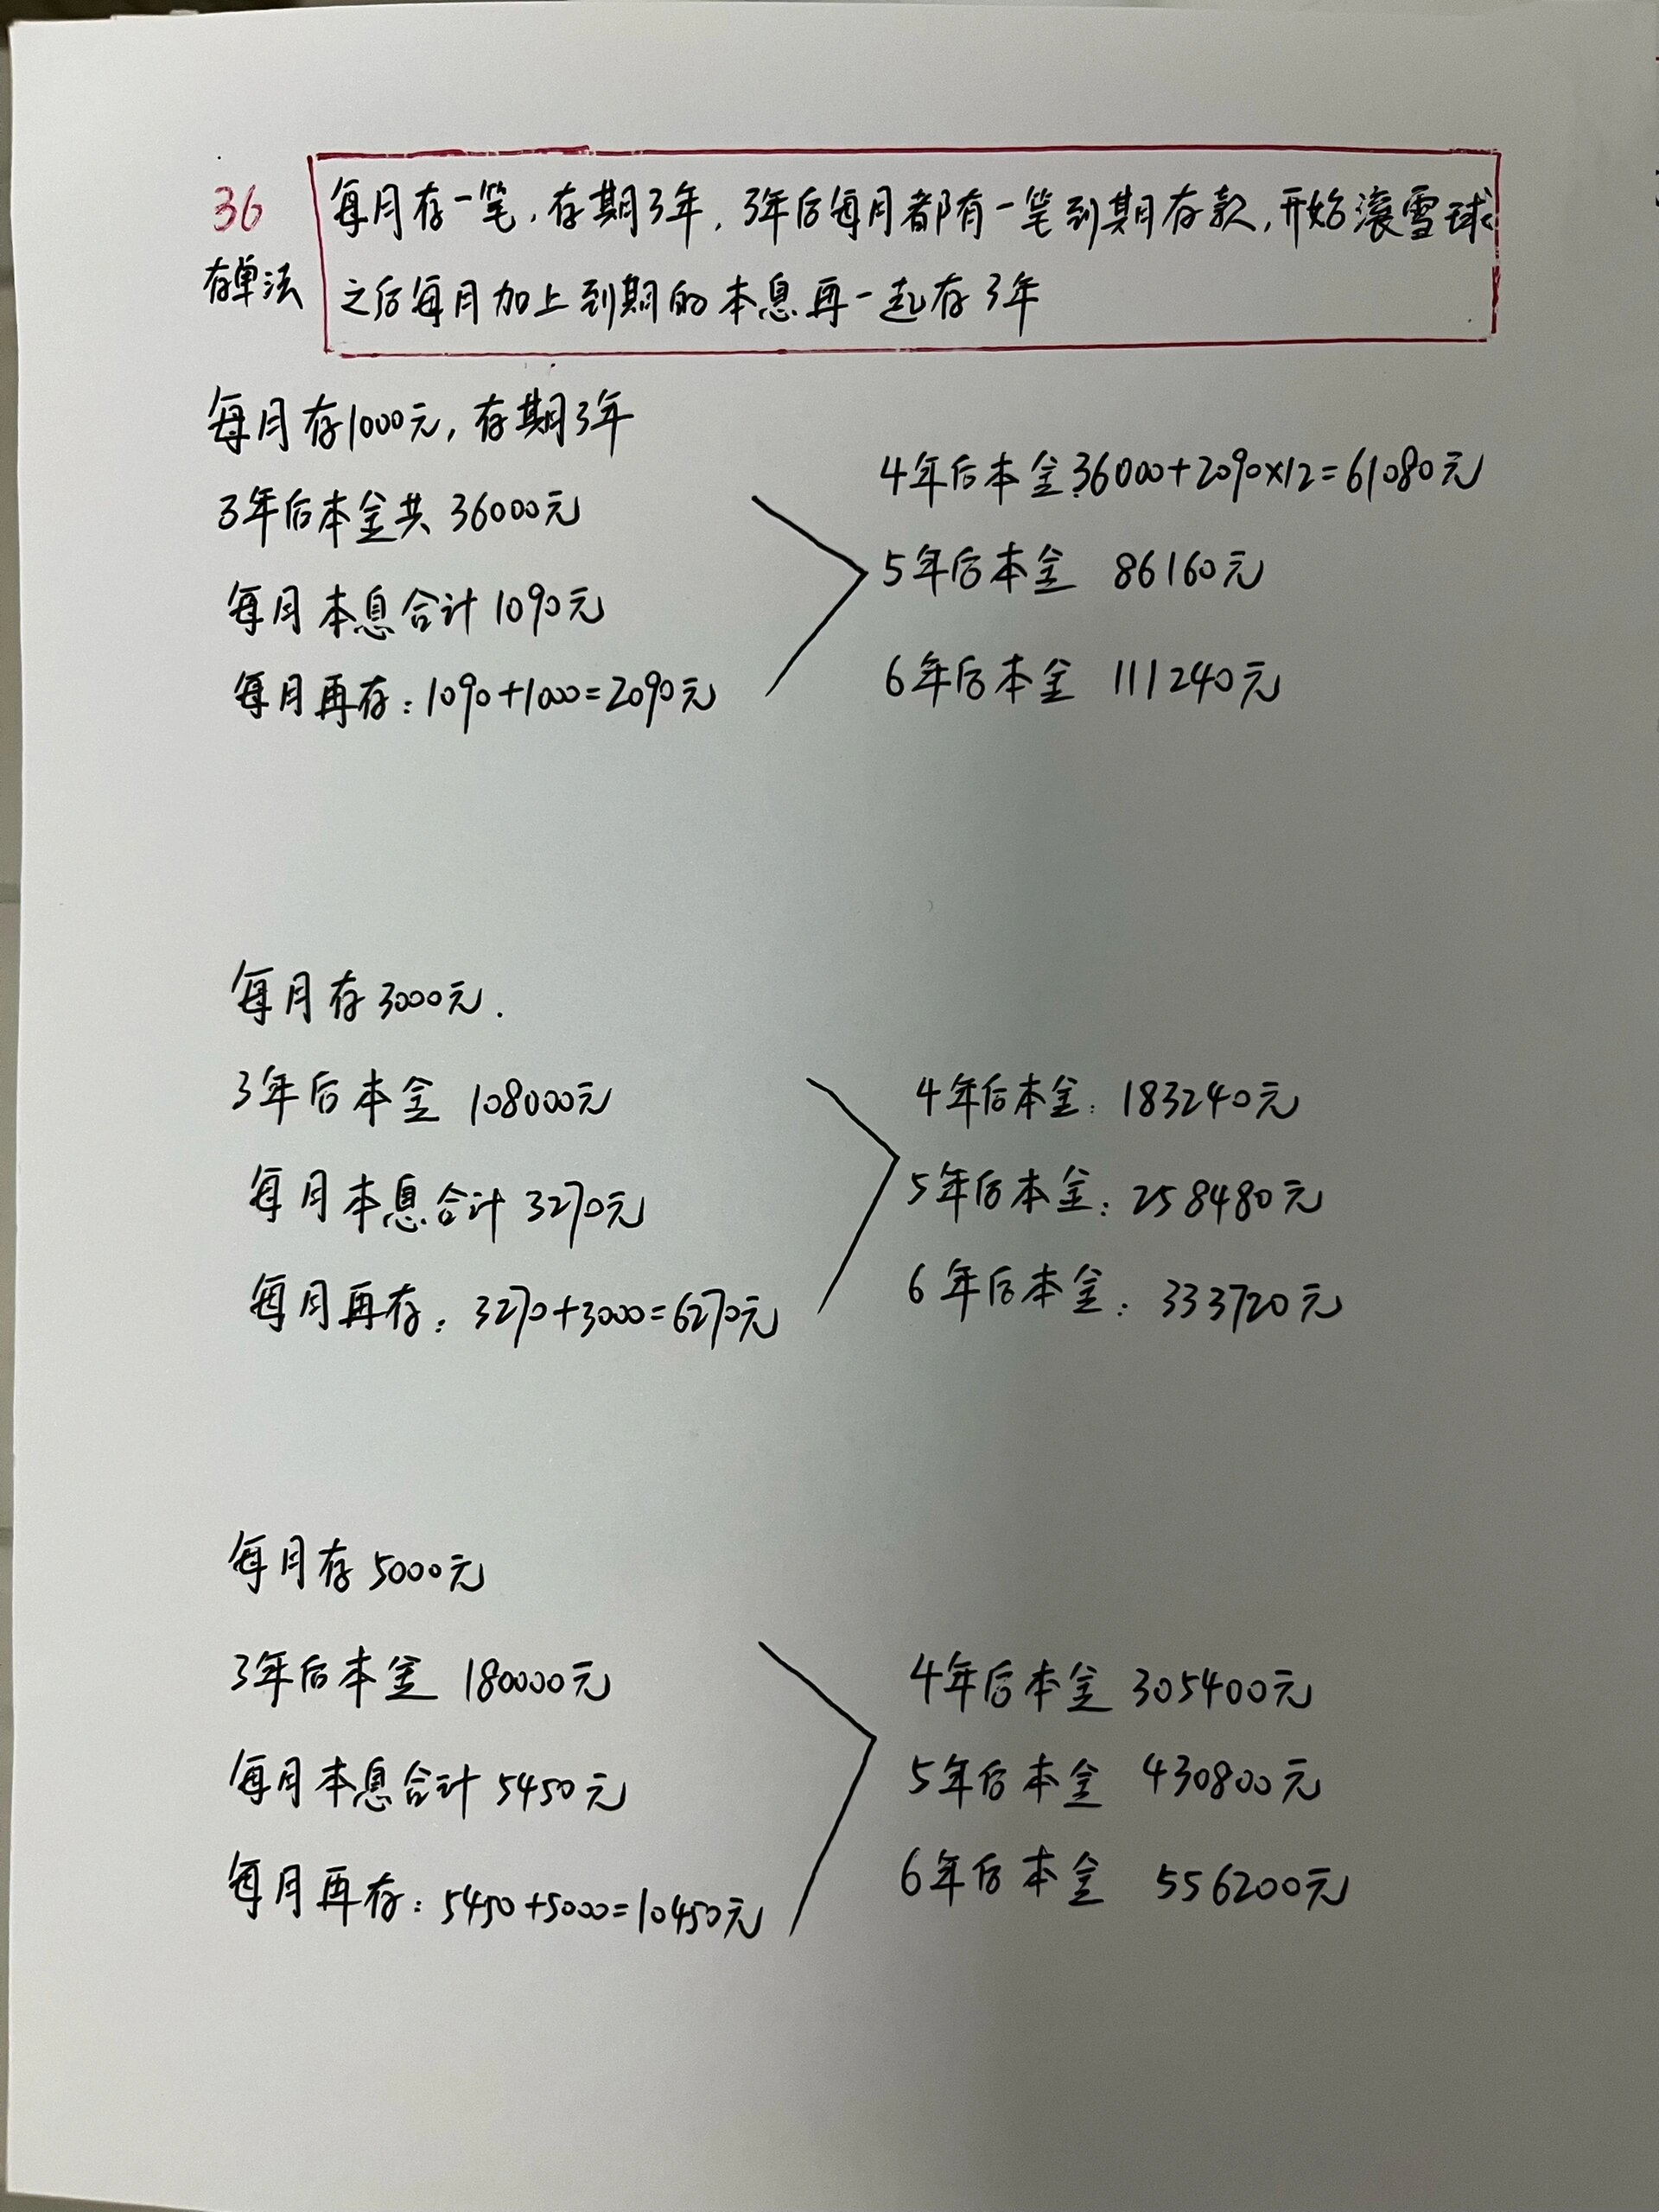 36
存单法
每月存一笔，存期3年，3年后每月都有一笔到期存款，开始滚雪球
之后每月加上到期的本息再一起存3年
每月存1000元，存期3年
3年后本金共 36000元
每月本息合计 1090元
每月再存：1090+1000=2090元
4年后本金36000+2090×12=61080元
5年后本金 86160元
6年后本金 111240元
每月存3000元.
3年后本金 108000元
每月本息合计 3270元
每月再存：3270+3000=6270元
4年后本金：183240元
5年后本金：258480元
6年后本金：333720元
每月存5000元
3年后本金 180000元
每月本息合计 5450元
每月再存：5450+5000=10450元
4年后本金 305400元
5年后本金 430800元
6年后本金 556200元